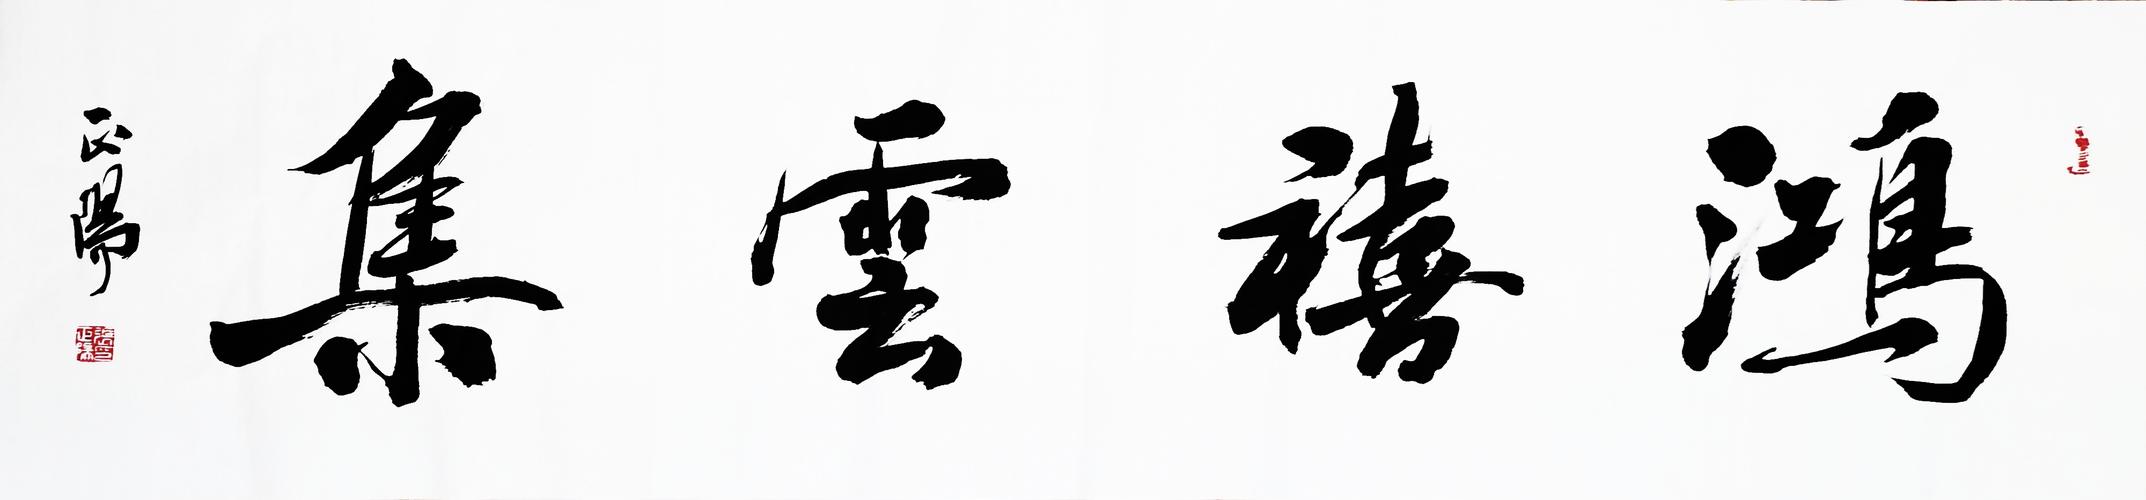 鴻禧雲集
正陽